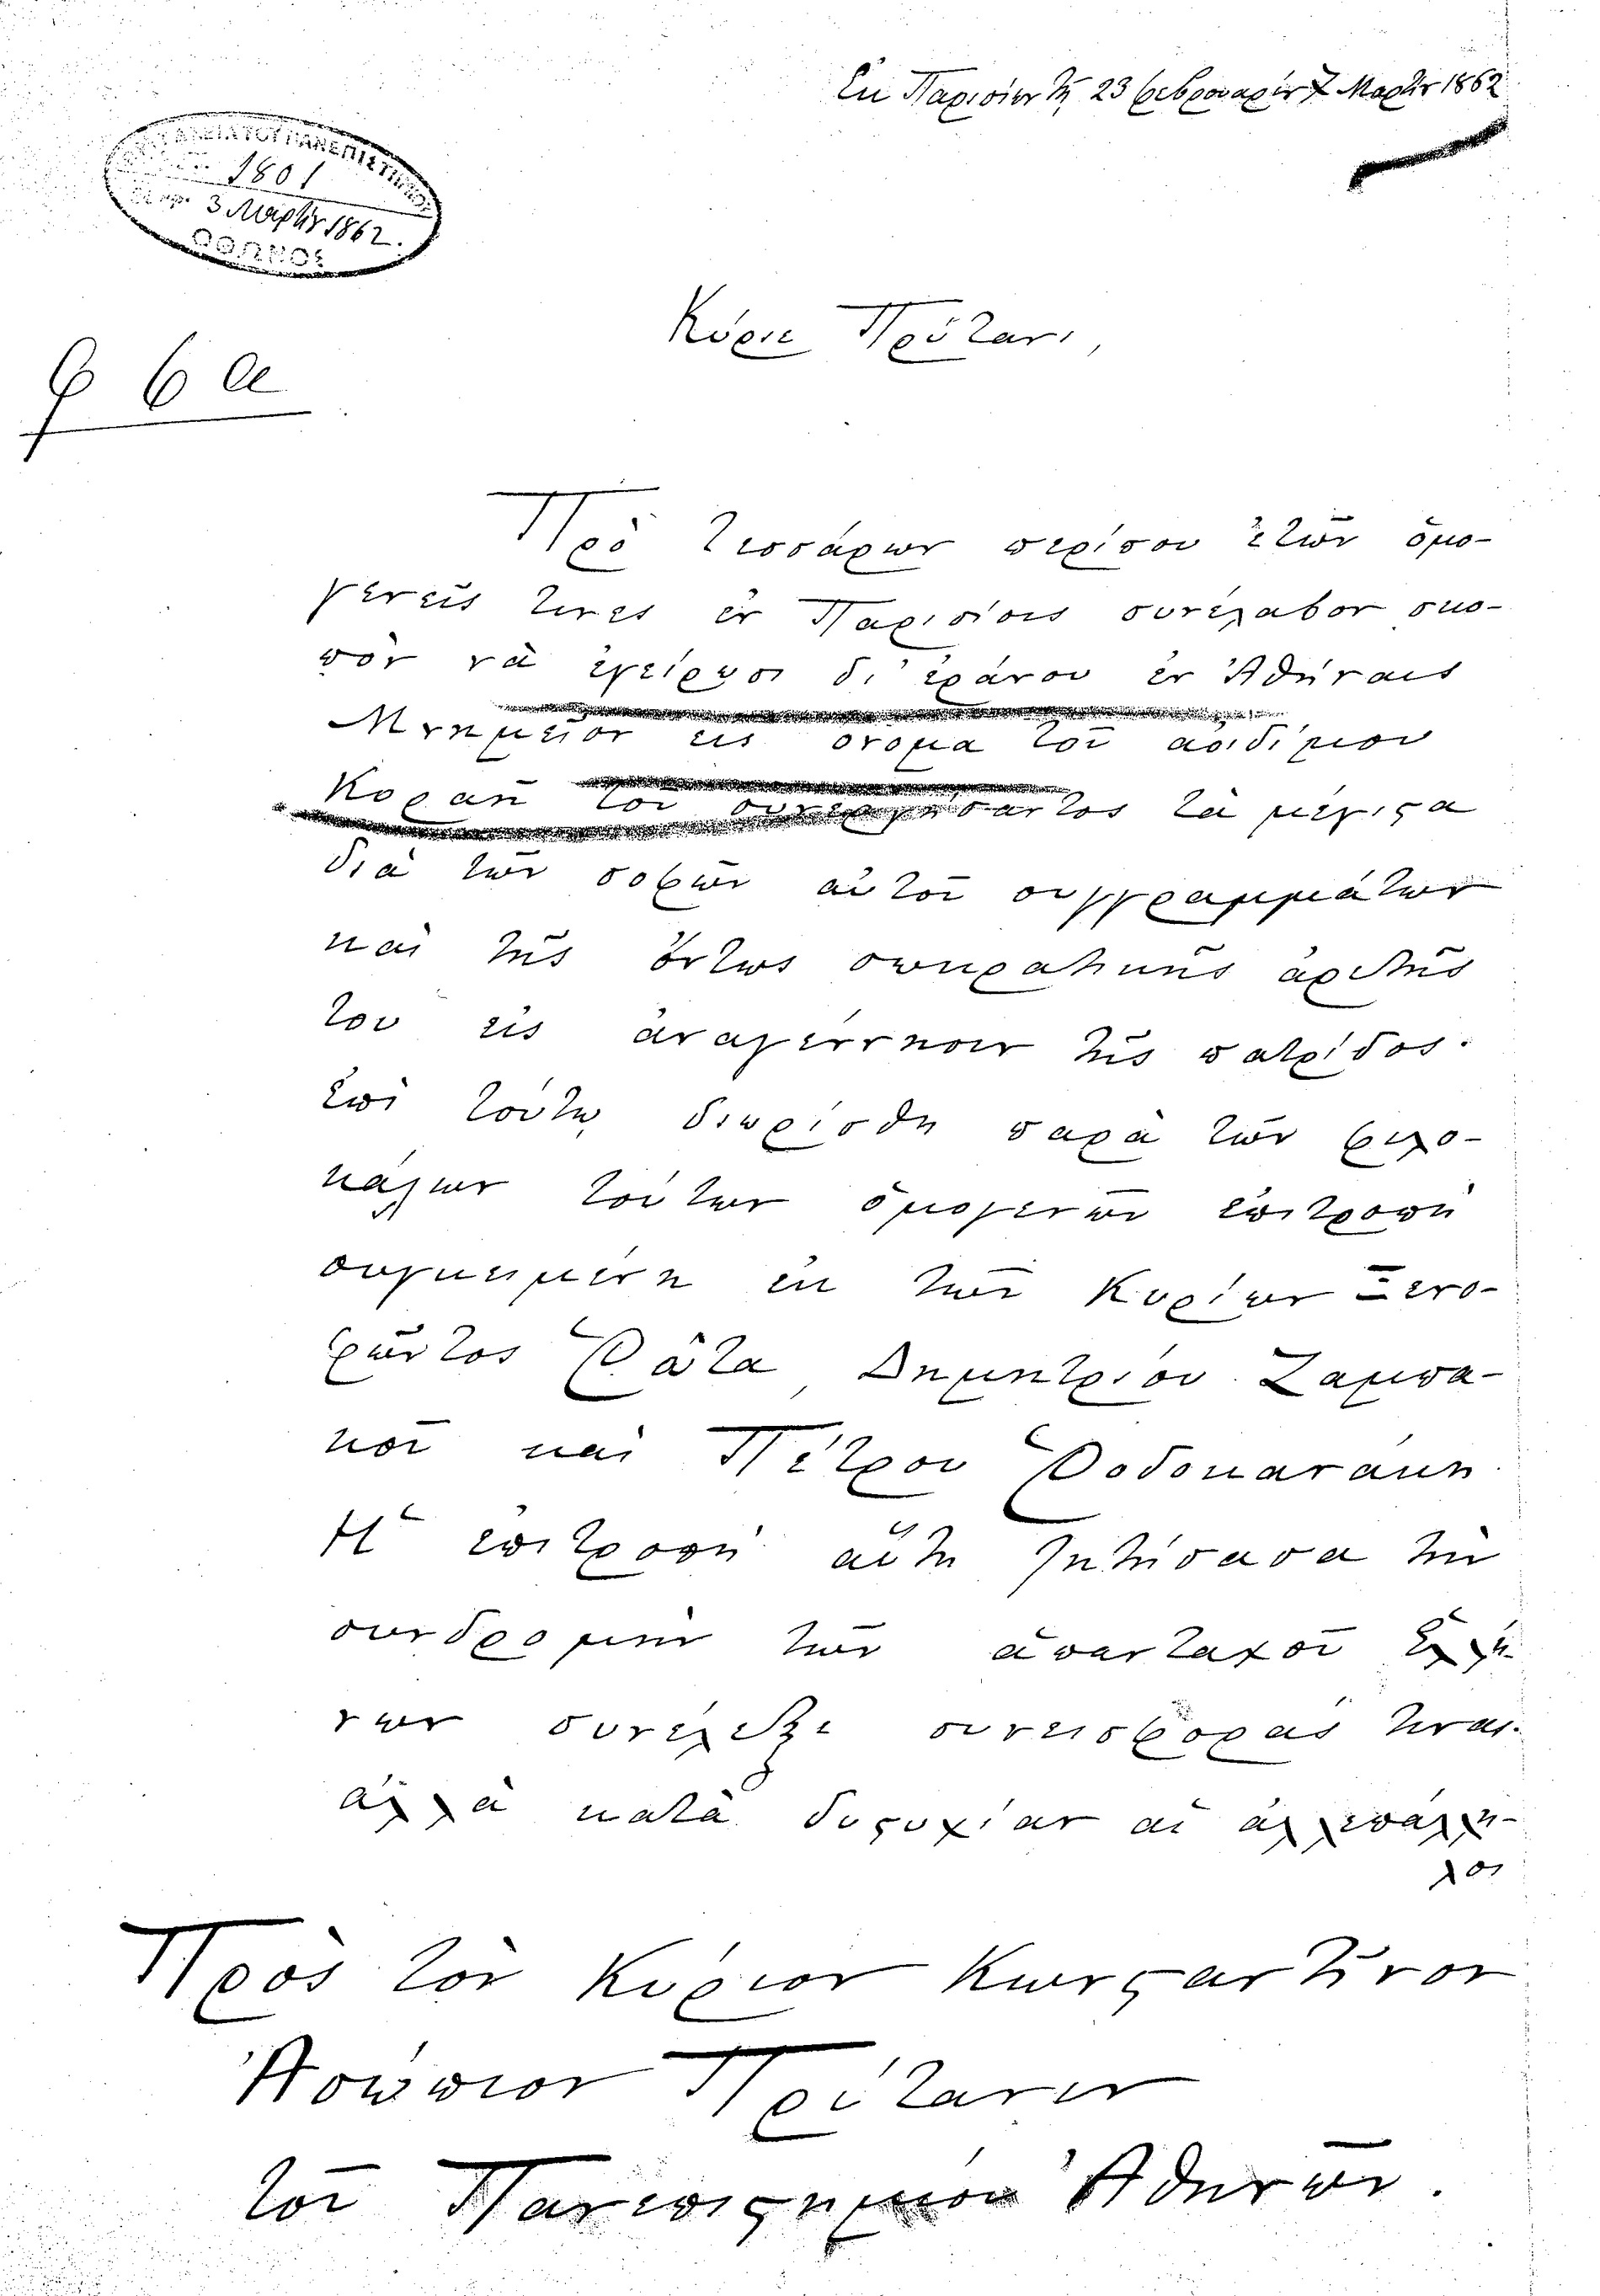 Ἐν Παρισίοις τῇ 23 Φεβρουαρίου 7 Μαρτίου 1862
1801
3 Μαρτίου 1862.
Κύριε Πρύτανι,
φ 6 α
Πρὸ τεσσάρων περίπου ἐτῶν ὁμο-
γενεῖς τινες ἐν Παρισίοις συνέλαβον σκο-
πὸν νὰ ἐγείρωσι δι' ἐράνου ἐν Ἀθήναις
Μνημεῖον εἰς ὄνομα τοῦ ἀοιδίμου
Κοραῆ τοῦ συνεργήσαντος τὰ μέγιστα
διὰ τῶν σοφῶν αὐτοῦ συγγραμμάτων
καὶ τῆς ὄντως σωκρατικῆς ἀρετῆς
του εἰς ἀναγέννησιν τῆς πατρίδος.
Ἐπὶ τούτῳ διωρίσθη παρὰ τῶν φιλο-
κάλων τούτων ὁμογενῶν ἐπιτροπὴ
συγκειμένη ἐκ τῶν Κυρίων Ξενο-
φῶντος Ῥάτα, Δημητρίου Ζαμπα-
κοῦ καὶ Πέτρου Ῥοδοκανάκη
Ἡ ἐπιτροπὴ αὕτη ζητήσασα τὴν
συνδρομὴν τῶν ἁπανταχοῦ Ἑλλή-
νων συνέλεξε συνεισφορὰς τινας.
ἀλλὰ κατὰ δυστυχίαν αἱ ἀλλεπάλλη-
λοι
Πρὸς τὸν Κύριον Κωνσταντῖνον
Ἀσώπιον Πρύτανιν
τοῦ Πανεπιστημίου Ἀθηνῶν.